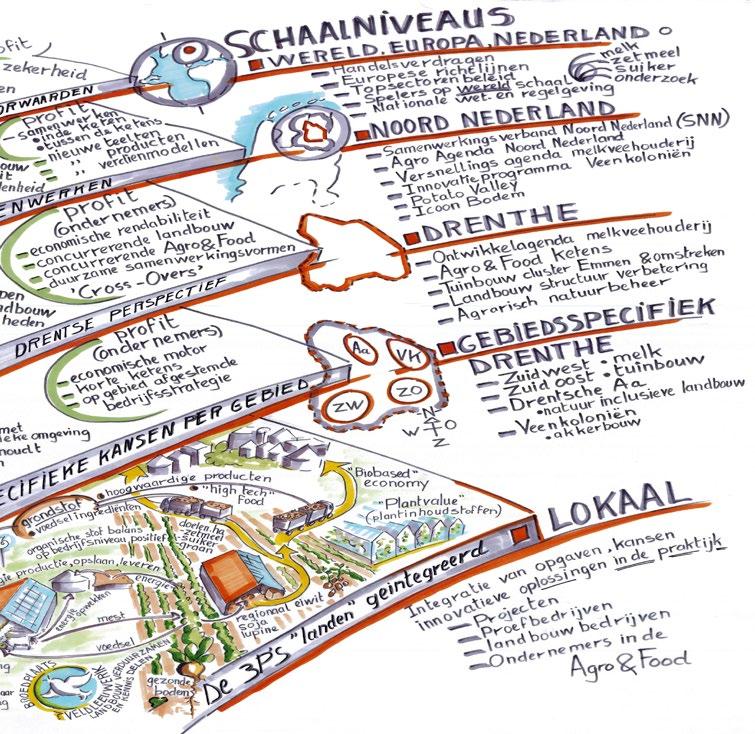 SCHAALNIVEAUS
WERELD, EUROPA, NEDERLAND
Handelsverdragen
Europese richtlijnen
Topsectoren beleid
Spelers op wereld schaal
Nationale wet- en regelgeving
melk
zetmeel
suiker
onderzoek
NOORD NEDERLAND
Samenwerkingsverband Noord Nederland (SNN)
Agro Agenda Noord Nederland
Versnellings agenda melkveehouderij
Innovatie Programma Veenkoloniën
Potato Valley
Icoon Bodem
DRENTHE
Ontwikkelagenda melkveehouderij
Agro & Food Ketens
Tuinbouw cluster Emmen & omstreken
Landbouw structuur verbetering
Agrarisch natuurbeheer
GEBIEDSSPECIFIEK
DRENTHE
Zuidwest • melk
Zuid oost • tuinbouw
Drentsche Aa
• natuur inclusieve landbouw
Veenkoloniën
• akkerbouw
LOKAAL
Integratie van opgaven, kansen
innovatieve oplossingen in de praktijk
Projecten
Proefbedrijven
landbouw bedrijven
Ondernemers in de
Agro & Food
ofit
zekerheid
en
ORWAARDEN
profit
samenwerken
• in de keten
• tussen de ketens
nieuwe teelten
" producten
" verdienmodellen
ouw
it
lenheid
ENWERKEN
profit
(ondernemers)
economische rendabiliteit
concurrerende landbouw
concurrerende Agro & Food
duurzame samenwerkingsvormen
'Cross-Overs'
pen
ndbouw
heden
DRENTSE PERSPECTIEF
profit
(ondernemers)
economische motor
korte ketens
op gebied afgestemde
bedrijfsstrategie
met
ieke omgeving
houdt
n
ECIFIEKE KANSEN PER GEBIED
Aa
VK
ZW
ZO
N
W
O
Z
grondstof
• voedselingrediënten
• hoogwaardige producten
• "high tech"
Food
"Biobased"
economy
"Plantvalue"
(plantinhoudstoffen)
organische stof balans
op bedrijfsniveau positief
doelen.ha
zetmeel
suiker
graan
gie productie, opslaan, leveren
energie
energie opwekken
mest
voedsel
regionaal eiwit
soja
lupine
gezonde
bodems
BROEDPLAATS
VELDLEEUWERIK
LANDBOUW VERDUURZAMEN
EN KENNIS DELEN
ng
aar
ng
De 3P's "landen" geintegreerd